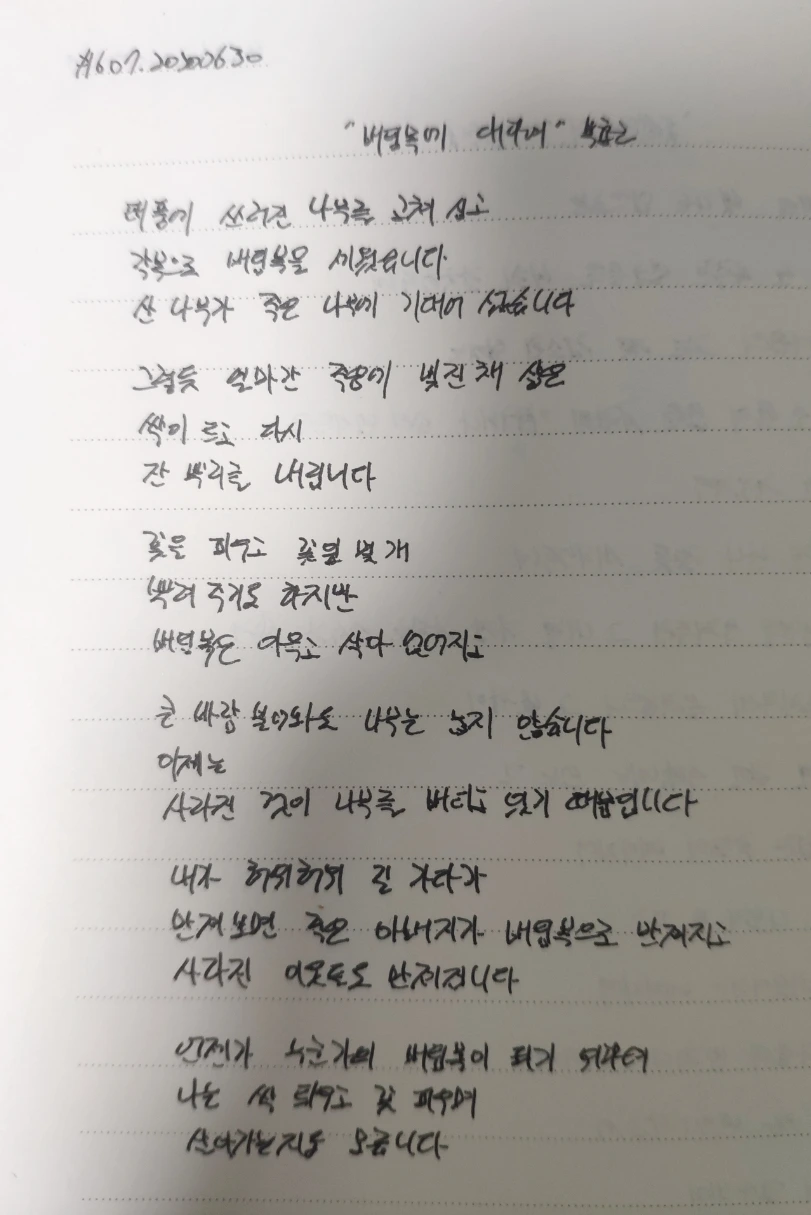 #607. 20200630
"버팀목에 대하여" 복효근
태풍에 쓰러진 나무를 고쳐 심고
각목으로 버팀목을 세웠습니다
산 나무가 죽은 나무에 기대어 섰습니다
그렇듯 얼마간 죽음에 빚진 채 삶은
싹이 트고 다시
잔 뿌리를 내립니다
꽃을 피우고 꽃잎 몇 개
뿌려주기도 하지만
버팀목은 이윽고 삭아 없어지고
큰 바람 불어와도 나무는 눕지 않습니다
이제는
사라진 것이 나무를 버티고 있기 때문입니다
내가 허위허위 길 가다가
만져보면 죽은 아버지가 버팀목으로 만져지고
사라진 이웃들도 만져집니다
언젠가 누군가의 버팀목이 되기 위하여
나는 싹 틔우고 꽃 피우며
살아가는지도 모릅니다